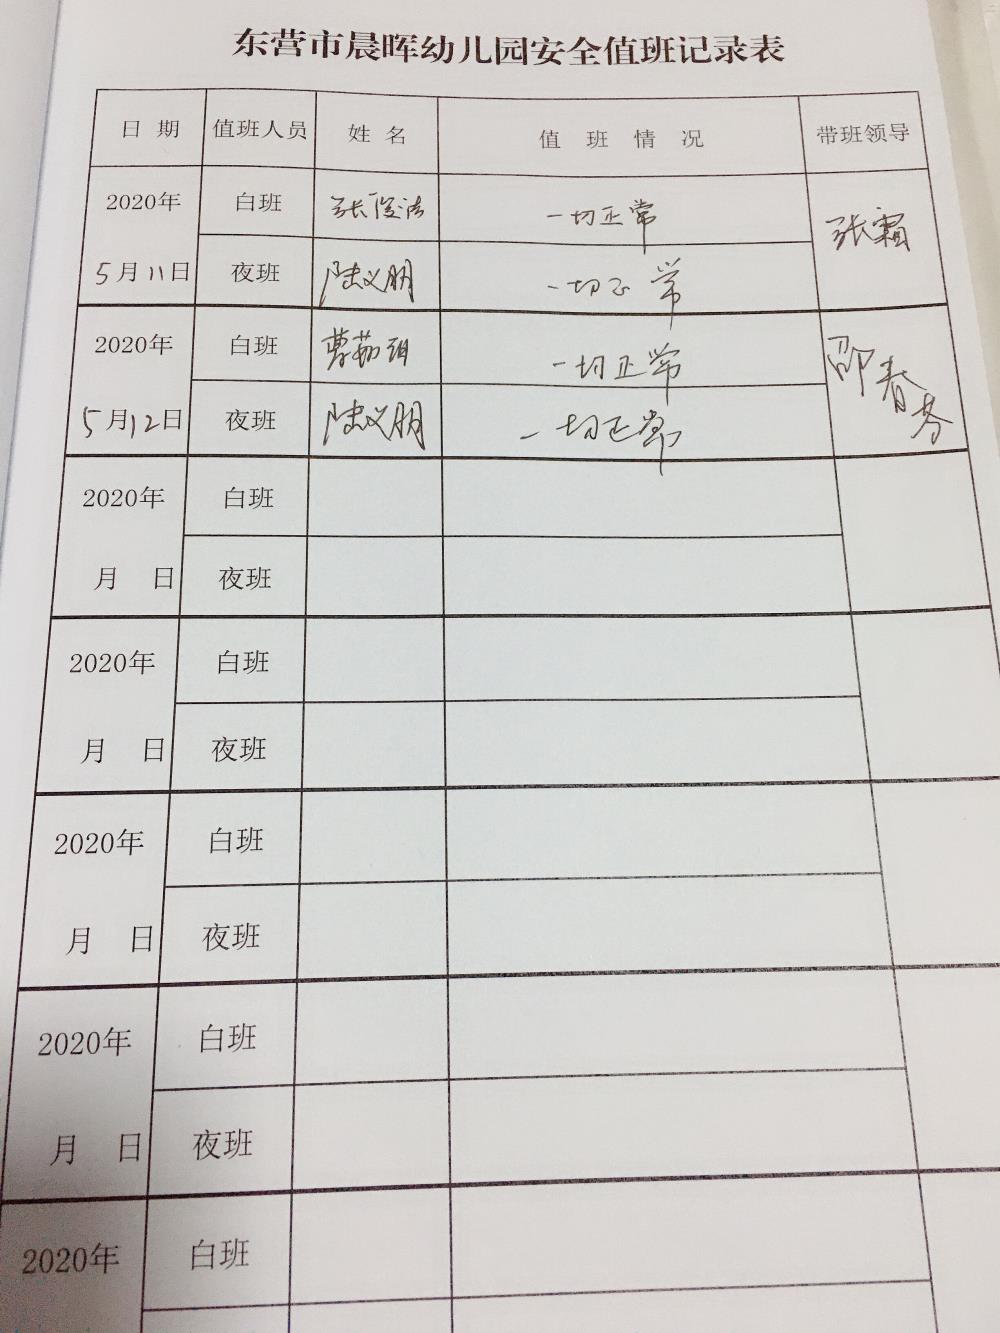 东营市晨晖幼儿园安全值班记录表
日 期 值班人员 姓 名 值 班 情 况 带班领导
2020年 白班 张俊洁 一切正常 张霜
5月11日 夜班 陆义朋 一切正常
2020年 白班 一切正常 邵春芬
5月12日 夜班 陆义朋 一切正常
2020年 白班
月 日 夜班
2020年 白班
月 日 夜班
2020年 白班
月 日 夜班
2020年 白班
月 日 夜班
2020年 白班